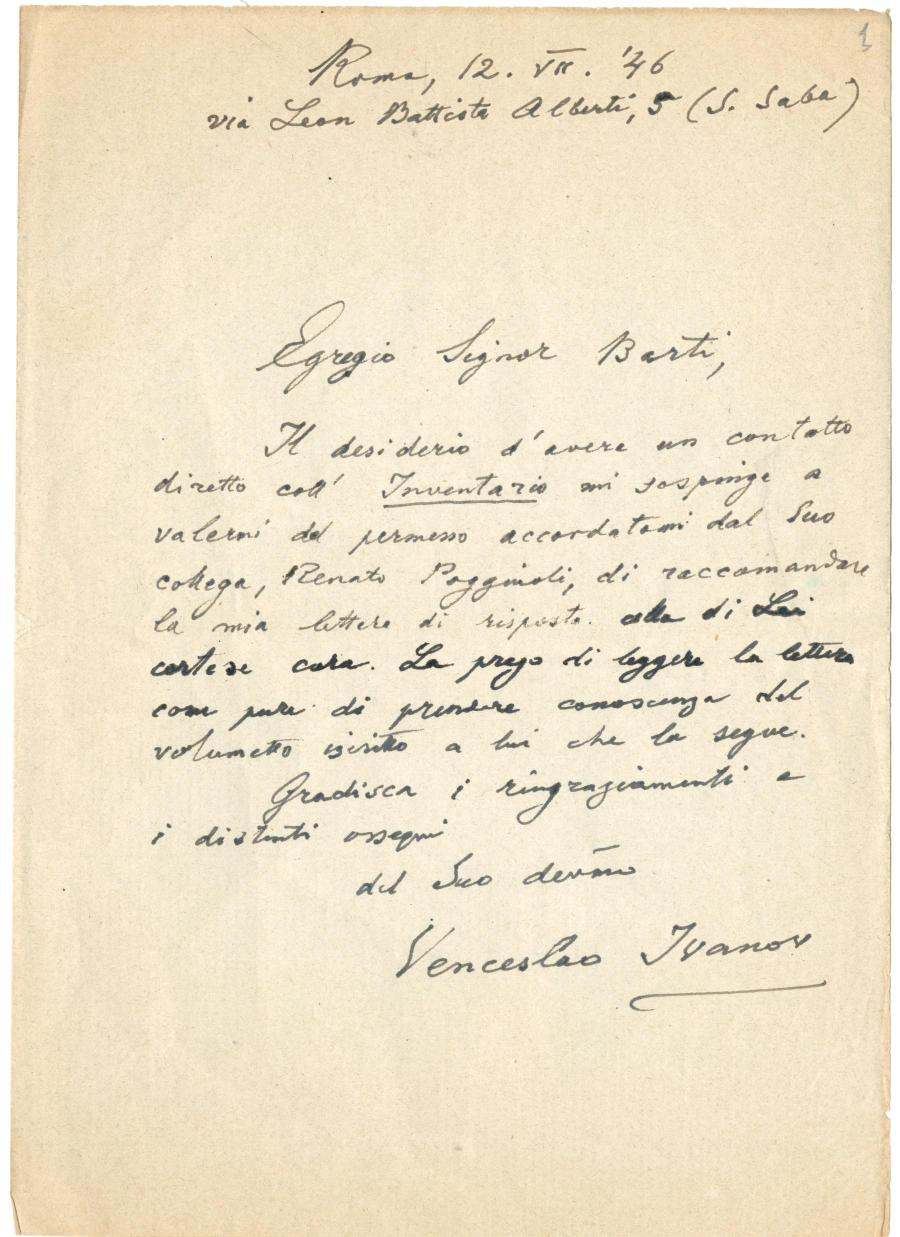 1
Roma, 12. VII. '46
via Leon Battista Alberti, 5 (S. Saba)
Egregio Signor Barti,
Il desiderio d'avere un contatto
diretto coll' Inventario mi sospinge a
valermi del permesso accordatomi dal Suo
collega, Renato Poggioli, di raccomandare
la mia lettera di risposta alla di Lei
cortese cura. La prego di leggere la lettera
come pure di prendere conoscenza del
volumetto iscritto a lui che la segue.
Gradisca i ringraziamenti e
i distinti ossequi
del Suo devmo
Venceslao Ivanov